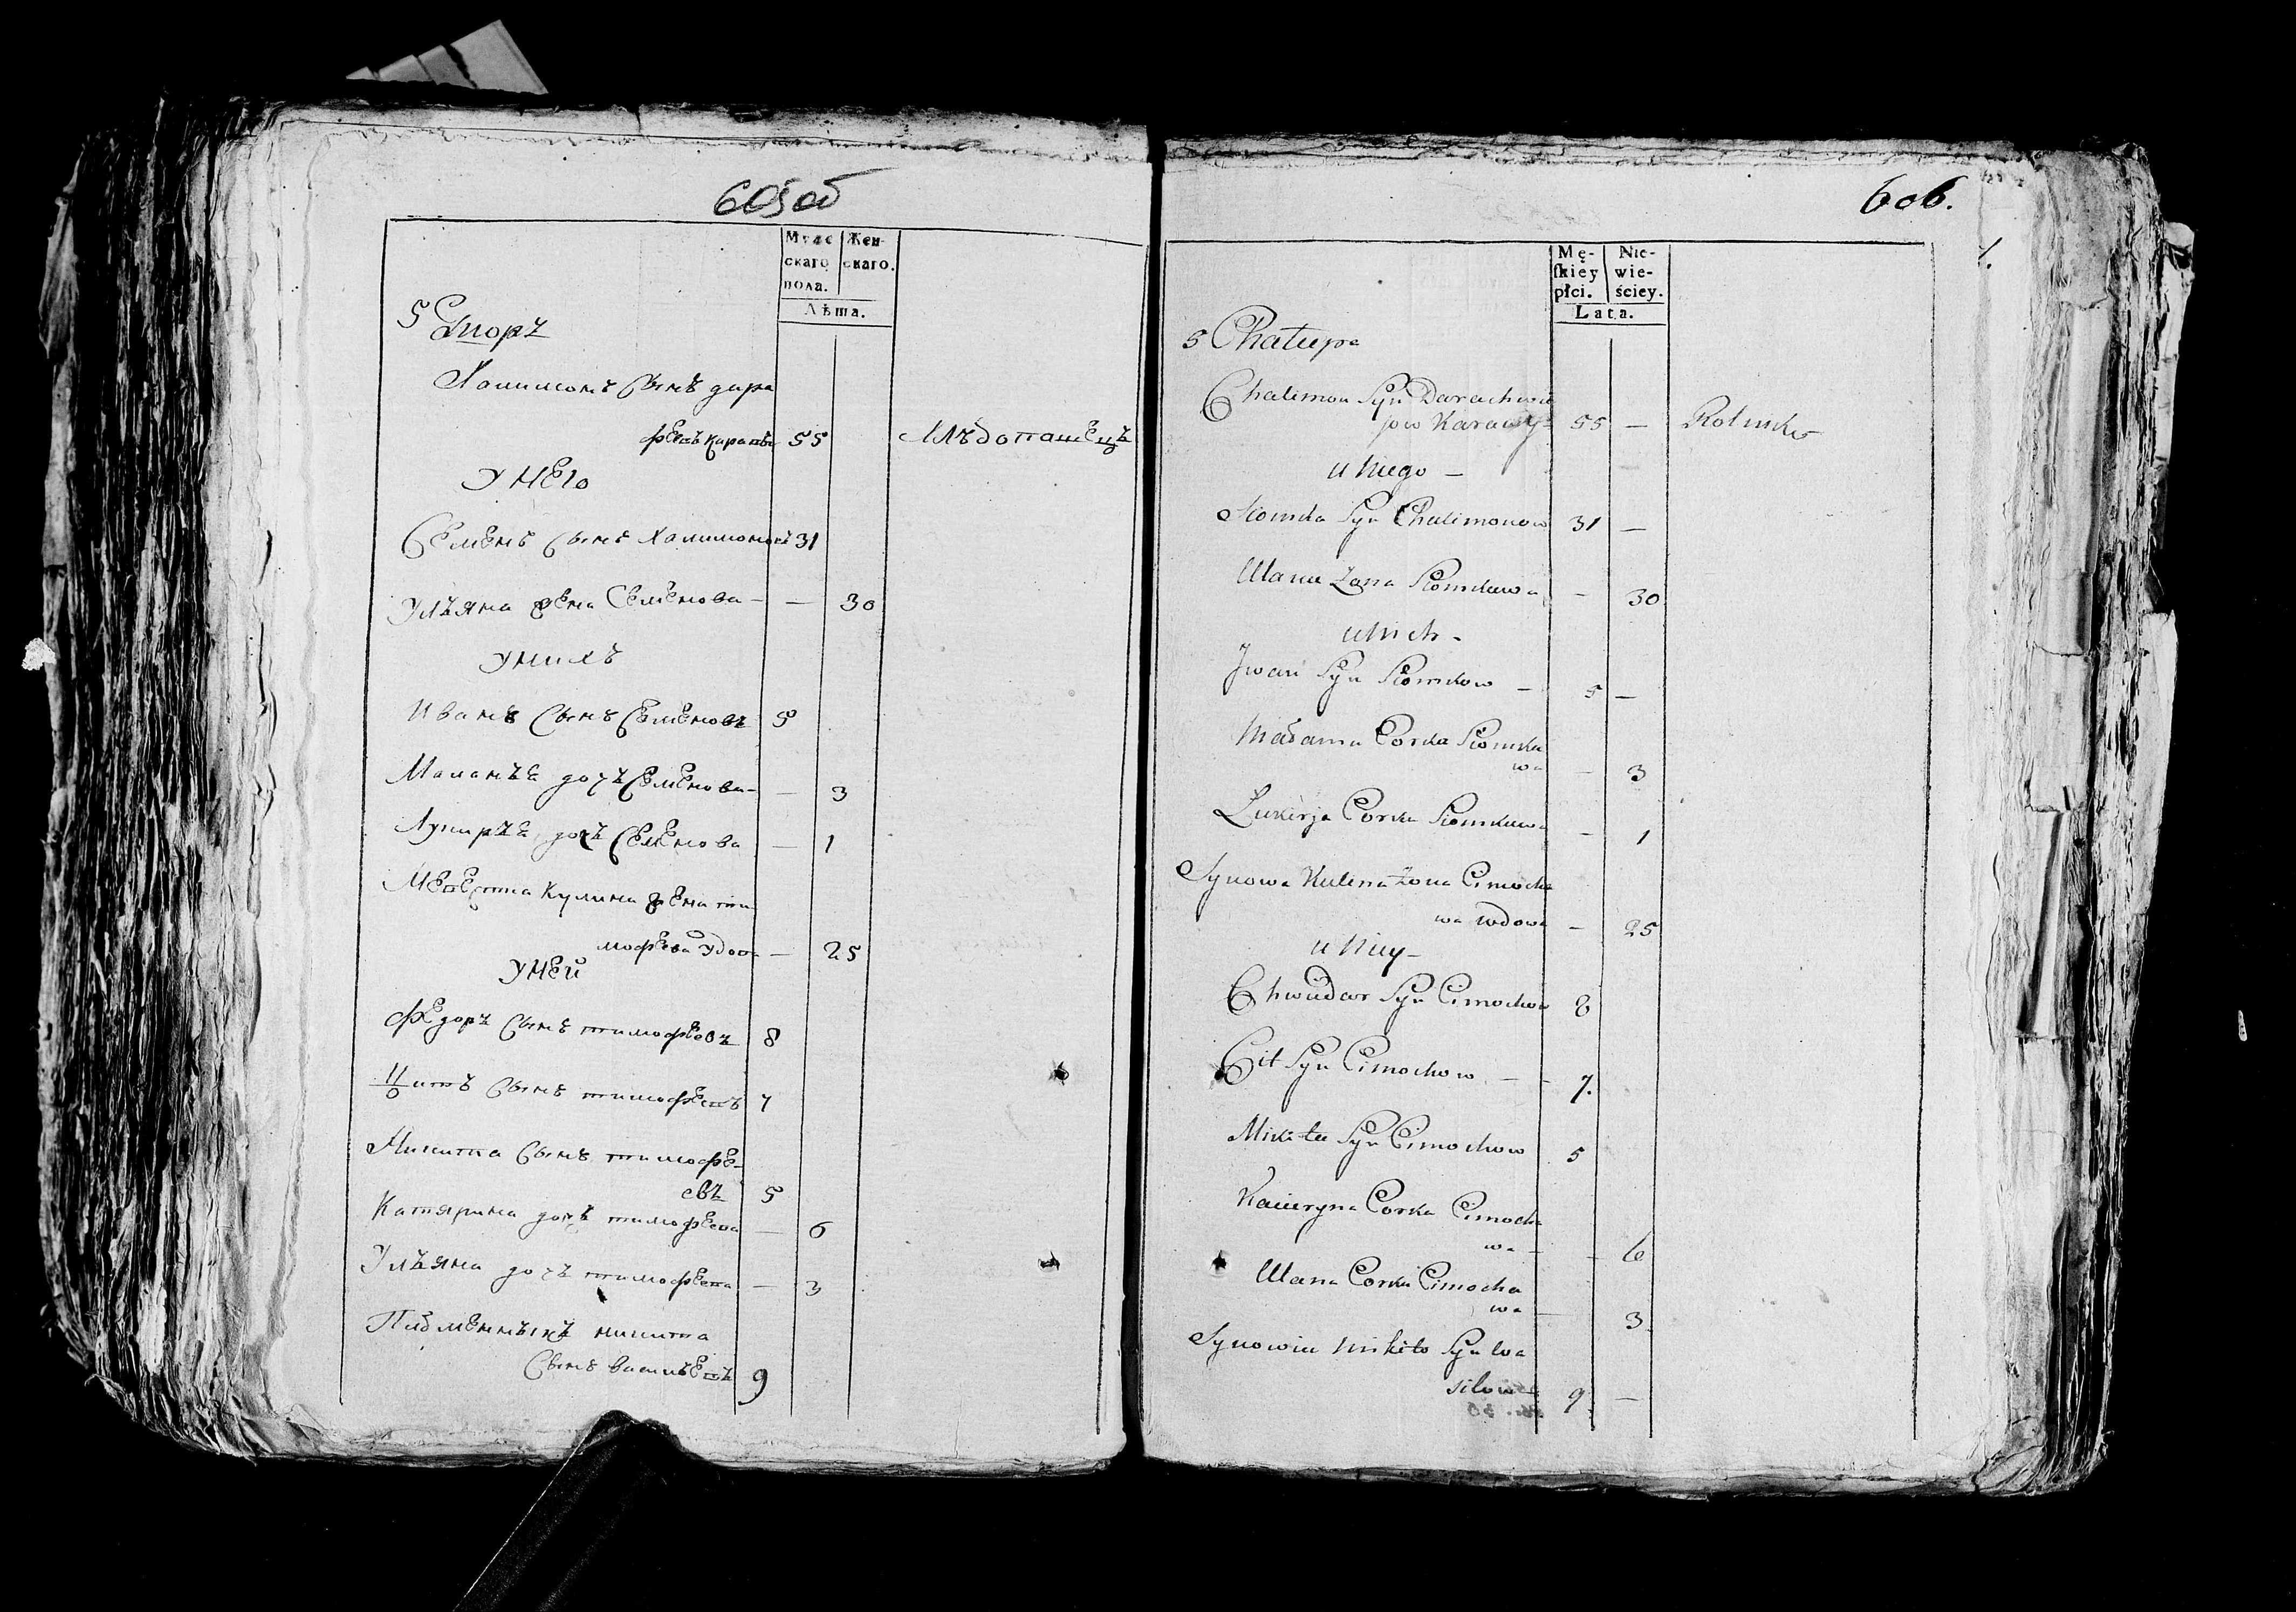 605об
Муже Жен-
скаго скаго.
пола.
Лѣта.
5 Дворъ
Халимонъ Сынъ дара
феевъ Каравы 55 Хлѣбопашецъ
У Него
Семенъ Сынъ Халимоновъ 31
Ульяна жена Семенова — — 30
У нихъ
Иванъ Сынъ Семеновъ 5
Маланья дочь Семенова — — 3
Лукирья дочь Семенова — 1
Невестка Кулина жена ти
мофеева Удова — 25
У Ней
Федоръ Сынъ тимофеевъ 8
Титъ Сынъ тимофеевъ 7
Никита Сынъ тимофе-
евъ 5
Катярина дочь тимофеева — 6
Ульяна дочь тимофеева — 3
Племенникъ никита
Сынъ васильевъ 9
606.
Mę- Nie-
skiey wie-
płci. ściey.
Lata.
5 Chałupa
Chalimon Syn Darachwie
jow Karawy 55 — Rolnik
u Niego —
Siomka Syn Chalimonow 31 —
Ulana Żona Siomkowa — 30
u Nich -
Jwan Syn Siomkow — 5 —
Małania Corka Siomko
wa — 3
Lukirja Corka Siomkowa — 1
Synowa Kulina Żona Cimocho
wa wdowa — 25
u Niey —
Chwiedor Syn Cimochow 8
Cit Syn Cimochow — - 7.
Mikita Syn Cimochow 5
Kacieryna Corka Cimocho
wa — — 6
Ulana Corka Cimocho
wa — 3
Synowiec Mikito Syn Wa
silow 9 —